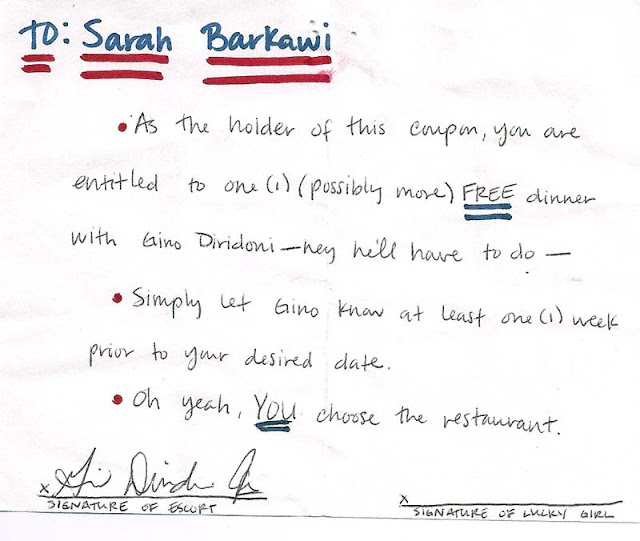 TO: Sarah Barkawi
• As the holder of this coupon, you are
entitled to one (1) (possibly more) FREE dinner
with Gino Diridoni — hey he'll have to do —
• Simply let Gino know at least one (1) week
prior to your desired date.
• Oh yeah, YOU choose the restaurant.
x x
SIGNATURE OF ESCORT SIGNATURE OF LUCKY GIRL